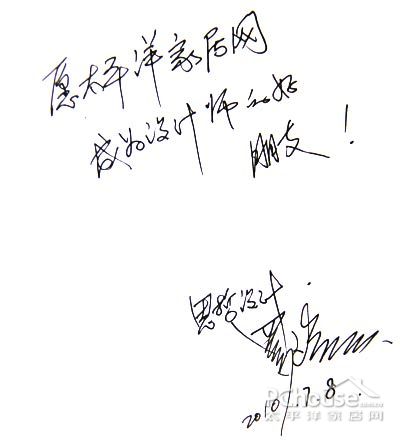 愿太平洋家居网
成为设计师的好
朋友！
思哲设计
2010.7.8.
PChouse
太平洋家居网